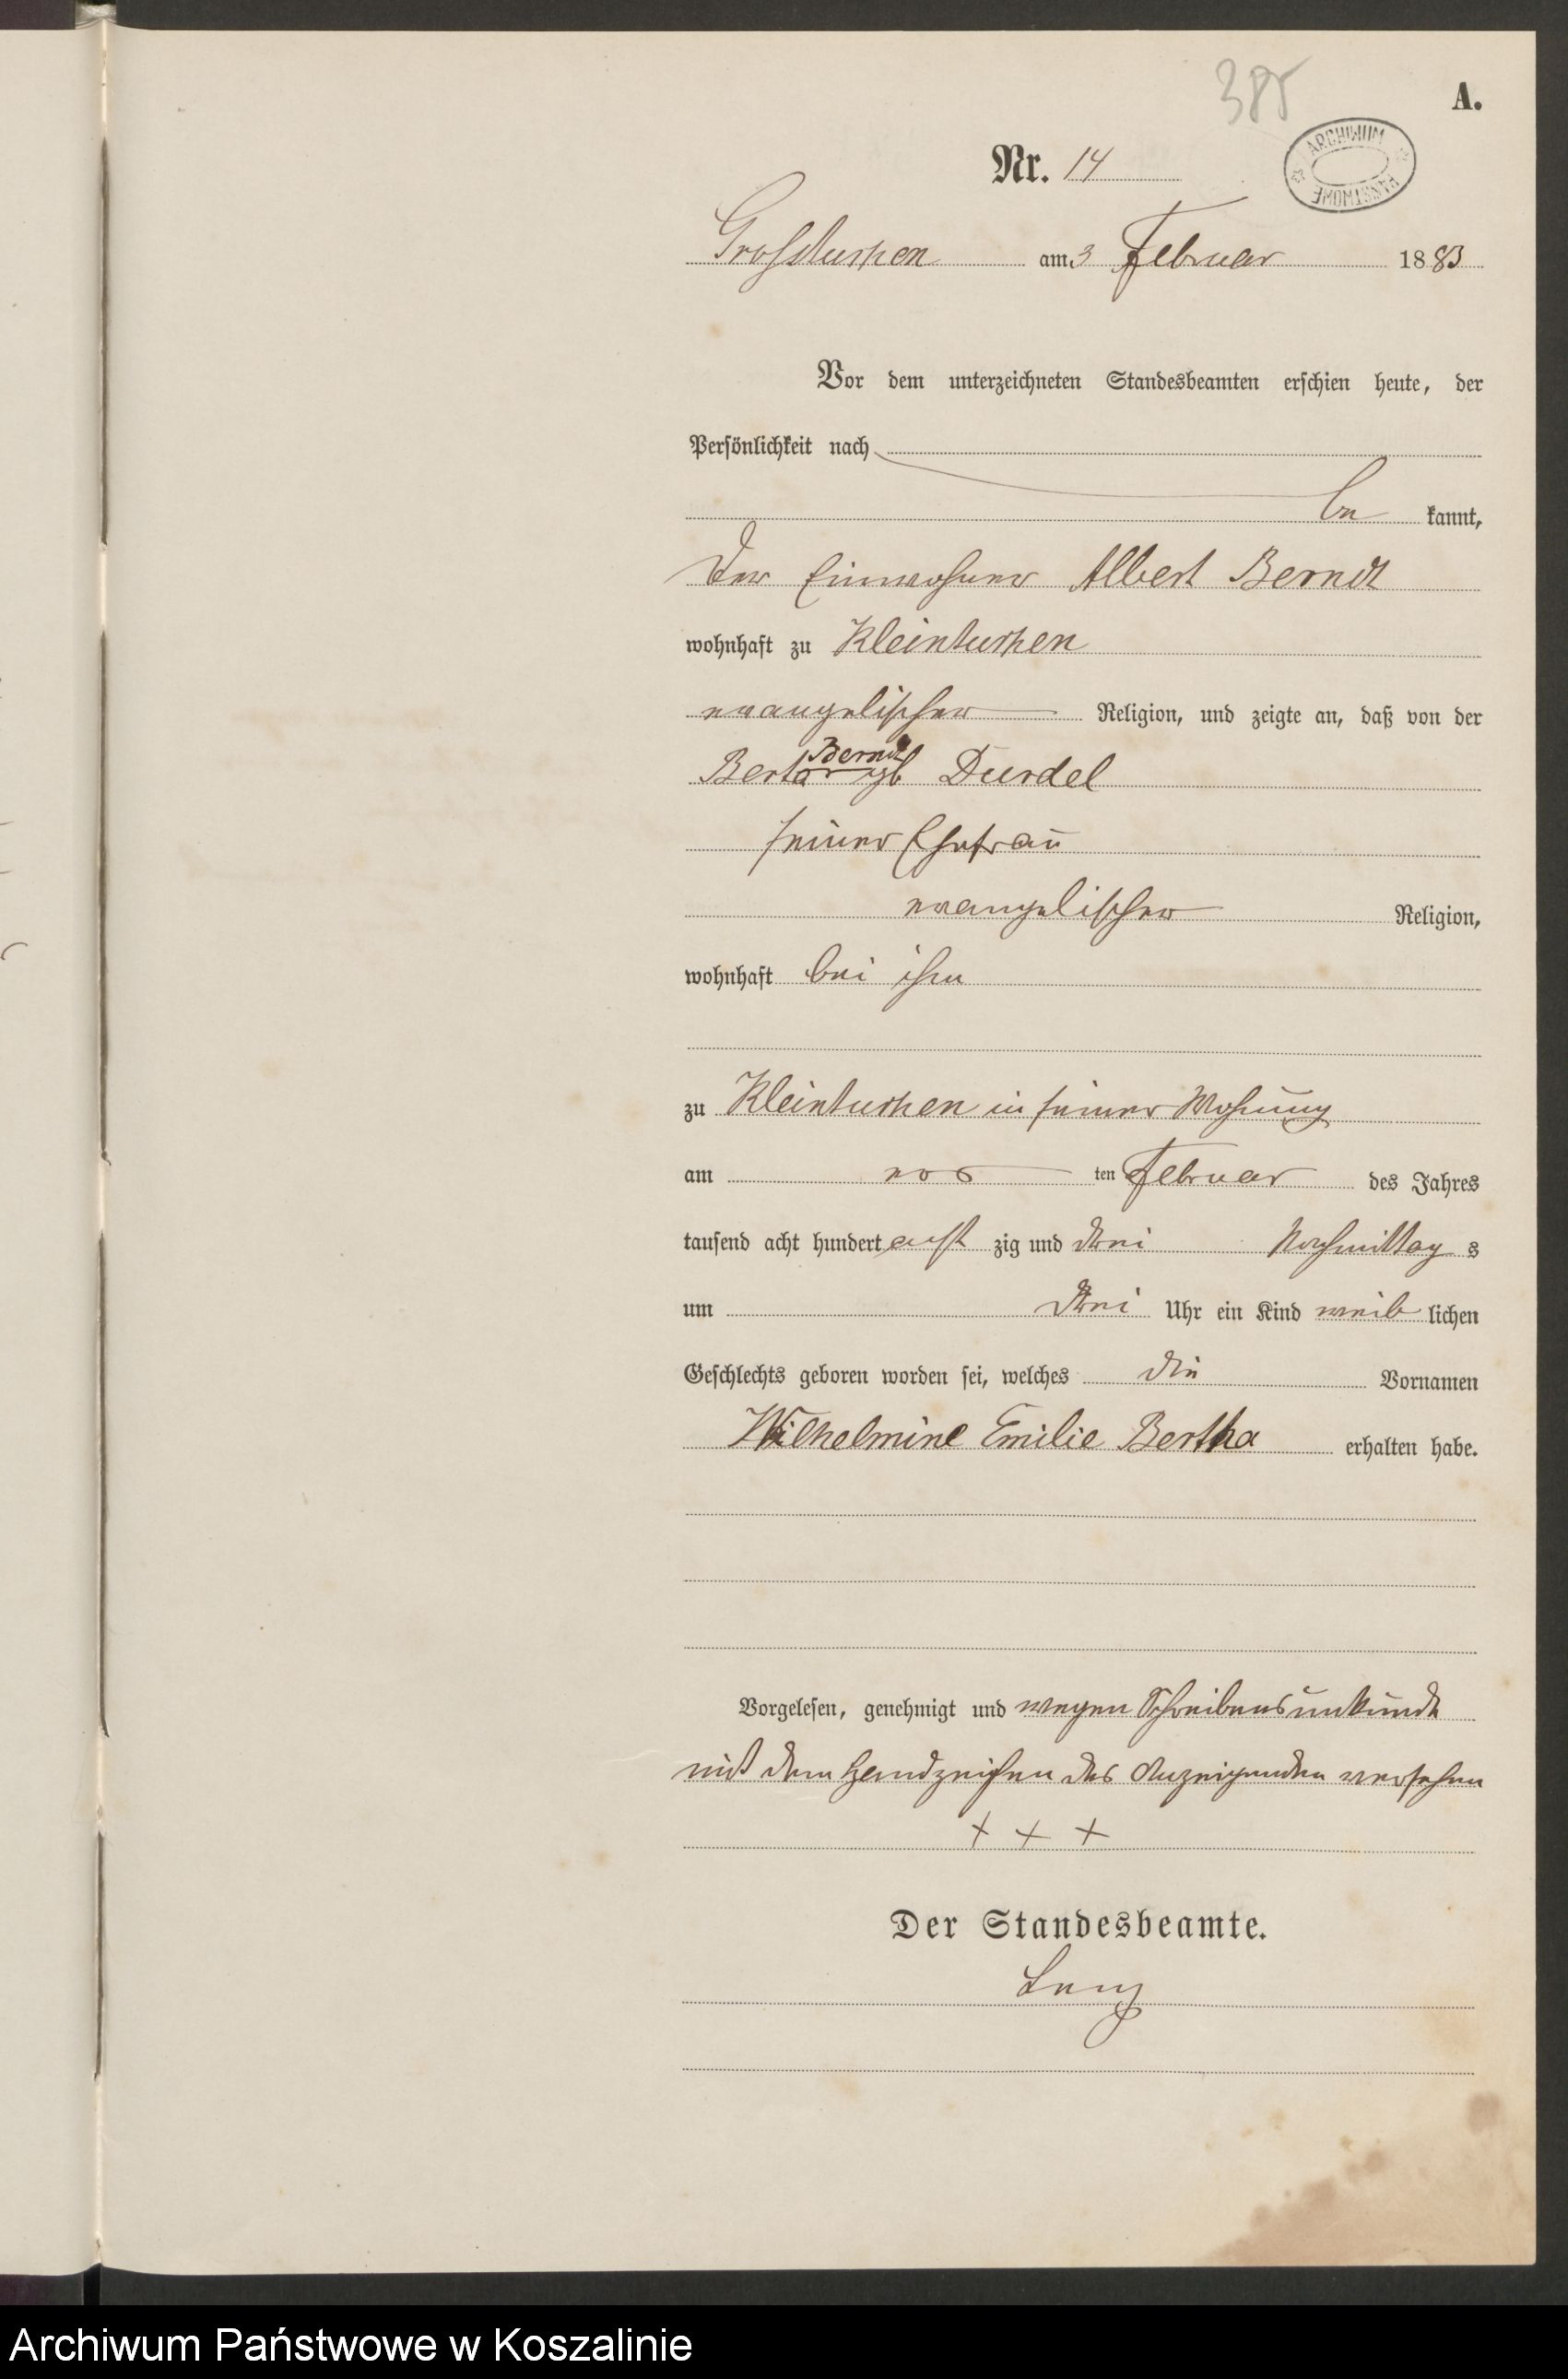 385
A.
Nr. 14
ARCHIWUM PAŃSTWOWE
Grossturhen am 3 Februar 1883
Vor dem unterzeichneten Standesbeamten erschien heute, der
Persönlichkeit nach
be kannt,
der Einwohner Albert Berndt
wohnhaft zu Kleinturhen
evangelischer Religion, und zeigte an, daß von der
Berndt
Berta gb Durdel
seiner Ehefrau
evangelischer Religion,
wohnhaft bei ihm
zu Kleinturhen in seiner Wohnung
am ten Februar des Jahres
tausend acht hundert acht zig und drei Nachmittag s
um drei Uhr ein Kind weib lichen
Geschlechts geboren worden sei, welches die Vornamen
Wilhelmine Emilie Bertha erhalten habe.
Vorgelesen, genehmigt und wegen Schreibensunkunde
mit dem Handzeichen des Anzeigenden versehen
+ + +
Der Standesbeamte.
Lenz
Archiwum Państwowe w Koszalinie